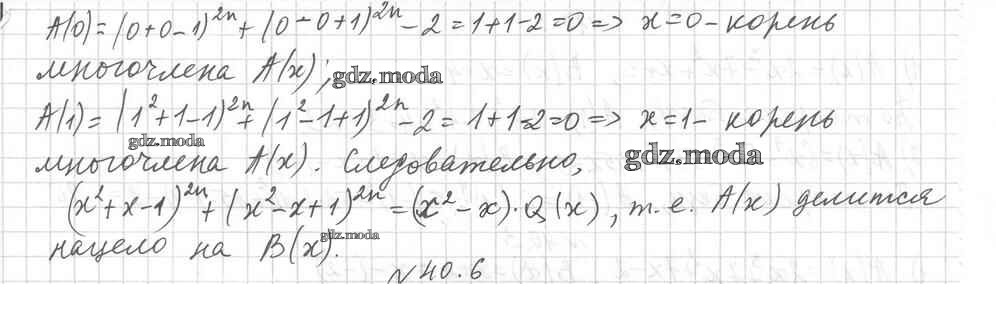 A(0)=(0+0-1)^2n+(0-0+1)^2n-2=1+1-2=0=> x=0- корень
многочлена A(x); gdz.moda
A(1)=(1^2+1-1)^2n+(1^2-1+1)^2n-2=1+1-2=0=> x=1- корень
gdz.moda
многочлена A(x). Следовательно, gdz.moda
(x^2+x-1)^2n+(x^2-x+1)^2n=(x^2-x)·Q(x), т.е. A(x) делится
нацело на B(x). gdz.moda
N40.6